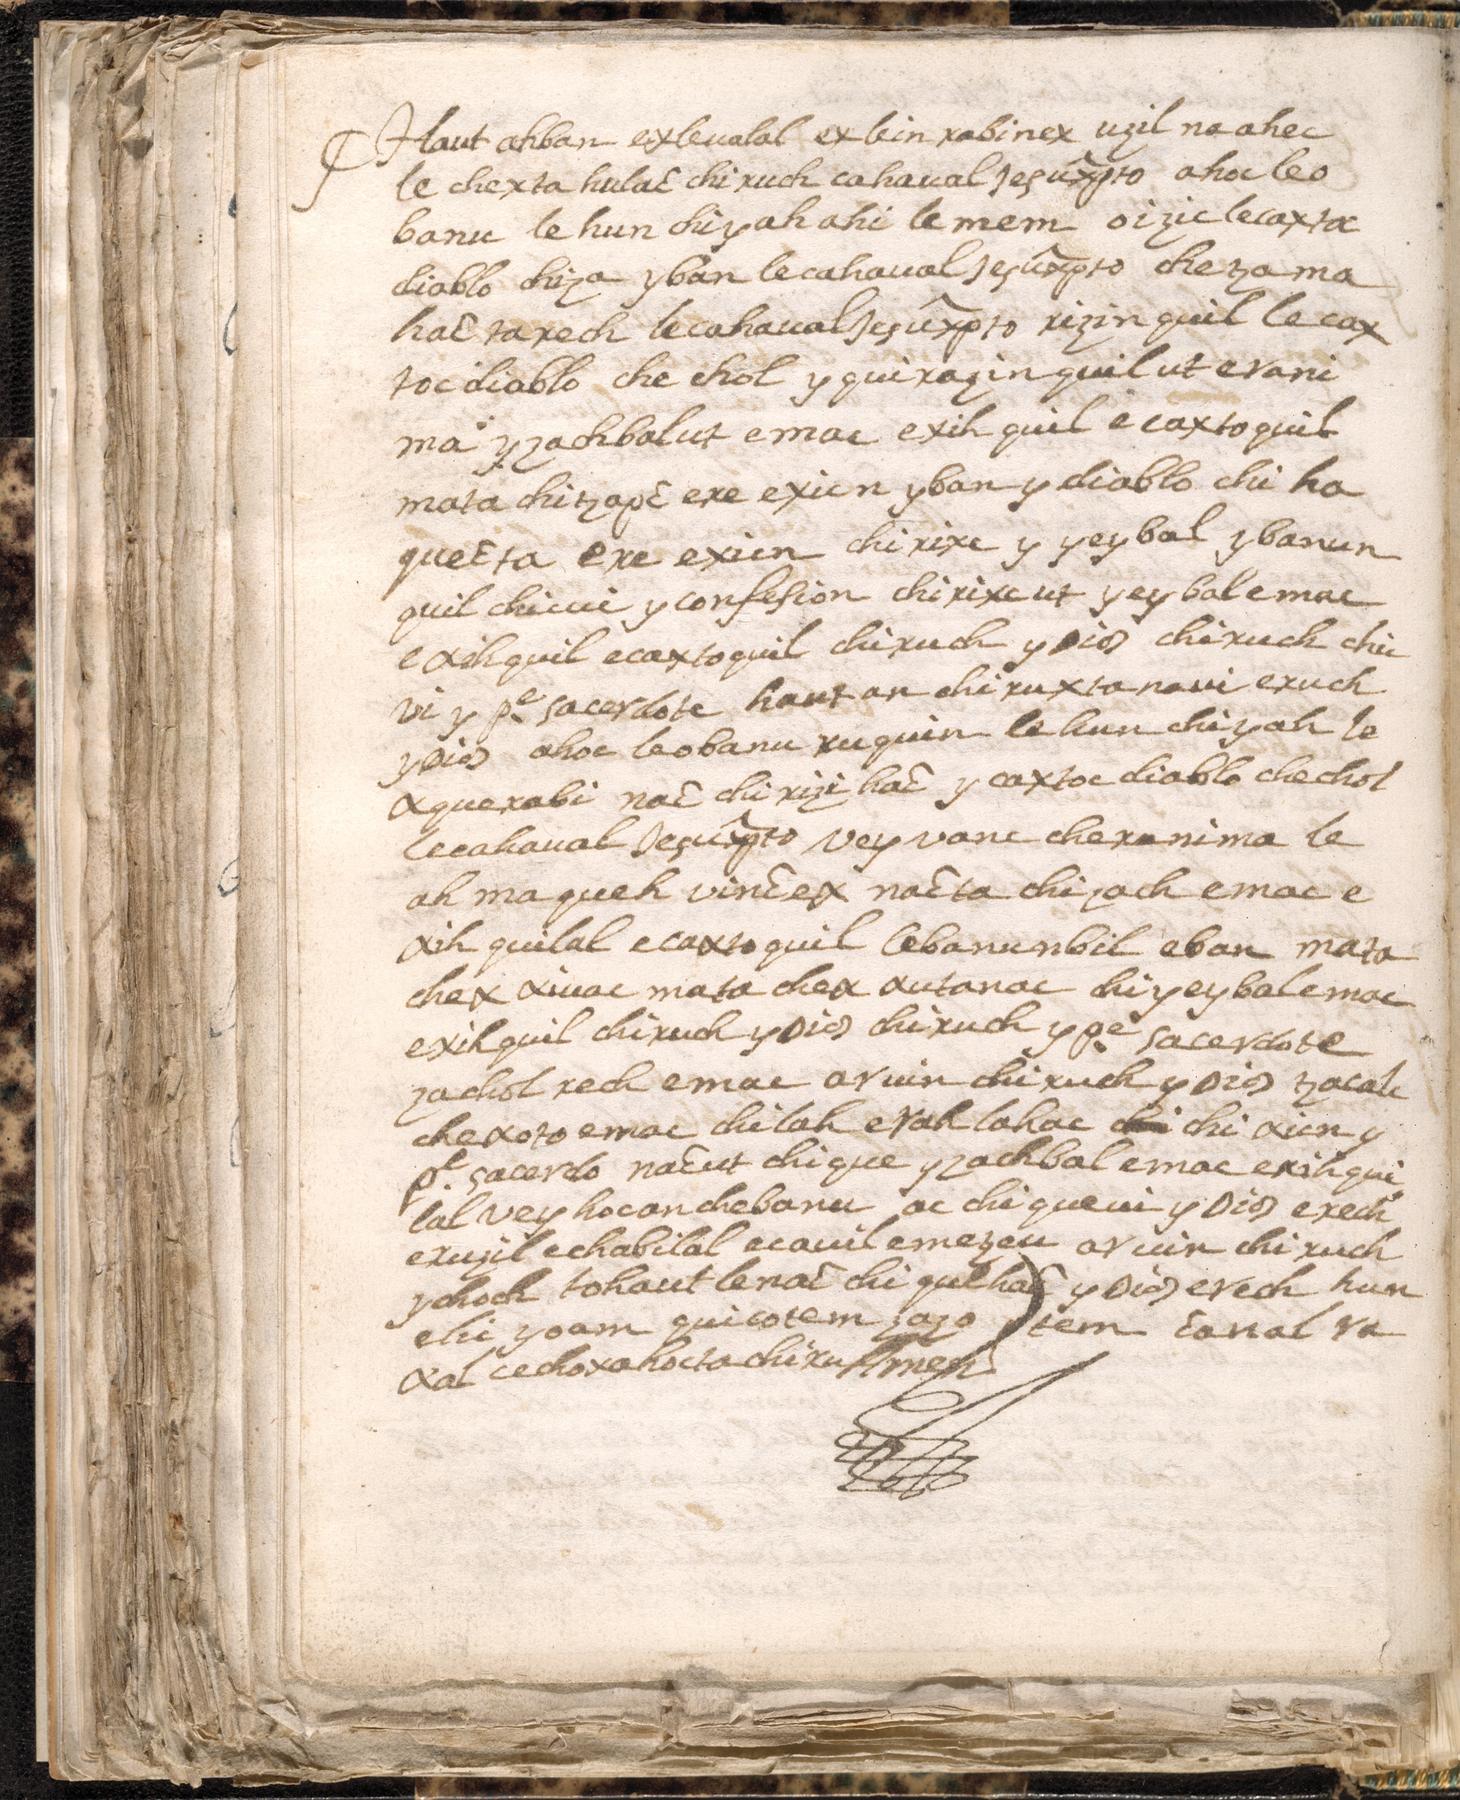 Haut ahban exleualal exlein rabinex uzil na ahec
le chexta hulaꜫ chi xuch cahaual Jesuxpto ahoc leo
banu le hun chiyah ahi le mem oizic lecaxtoc
diablo chiza yban lecahaual Jesuxpto chetzama
haꜫ ta rech lecahaual Jesuxpto rizin quil le cax
toc diablo che chol y quirazin quil ut erani
ma yzachbalut emac exih quil ecaxtoquil
mata chitzapꜫ ere exicn yban y diablo chi ha
queꜫta ere exicn chi rixc y yeybal ybanun
quil chicui y confesion chirixc ut yeybal emac
exihquil ecaxtoquil chiruch y Dios chiruch chic
vi y pe. sacerdote haut an chi ruxtanaui exuch
y Dios ahoc leobanu ruquin le hun chiyah le
xquerabi naꜫ chi rizihaꜫ y caxtoc diablo chechol
lecahaual Jesuxpto vey vanc cheranima le
ah maqueh vinꜫex naꜫta chizach emac e
xih quilal ecaxtoquil lebanunbil eban mata
chex xiuac mata chex xutanac chiyeybal emac
exihquil chiruch y Dios chiruch y pe. sacerdote
zachol rech emac aruin chiruch y Dios tzacalc
chexoto emac chilah erahlahac chi xicn y
pe. sacerdo naꜫut chique yzachbal emac exihqui
lal vey hocan chebanu ac chiqueui y Dios erech
eruzil echabilal ecauil emetzeu aruin chiruch
ychoch tohaut lenaꜫ chi quehaꜫ y Dios erech hun
elic zoam quicotem zazo tem ꜫanal ra
xal cechoxahocta chiruh men